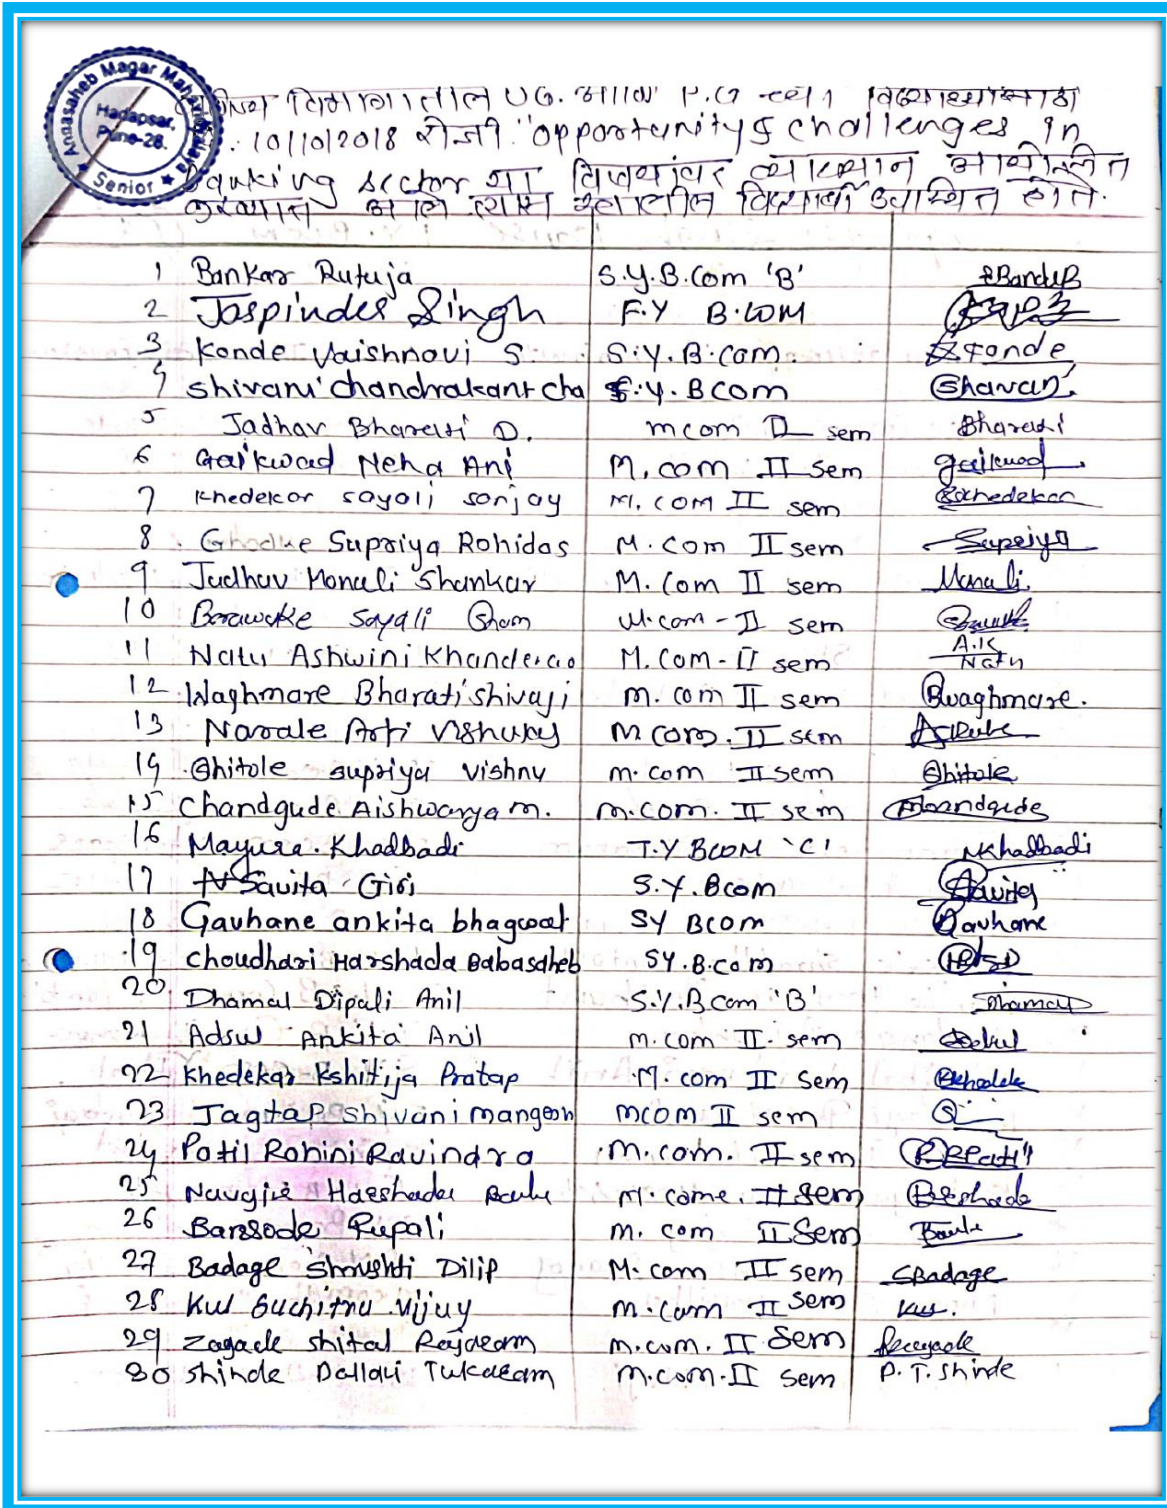 Annasaheb Magar Mahavidyalaya
Hadapsar,
Pune-28.
★ Senior ★
विभागातील UG. आणि P.G च्या विद्यार्थ्यांसाठी
. 10/10/2018 रोजी "opportunity & challenges in
Banking sector या विषयांवर व्याख्यान आयोजीत
करण्यात आले त्यास खालील विद्यार्थी उपस्थित होते.
1 Bankar Rutuja S.Y.B.Com 'B'
2 Jaspinder Singh F.Y B.COM
3 Konde Vaishnavi S. S.Y.B.com.
4 Shivani chandrakant cha F.Y.BCOM
5 Jadhav Bharati D. mcom II sem Bharati
6 Gaikwad Neha Ani M.com II Sem gaikwad
7 Khedekar sayali sanjay M.COM II sem
8 Ghodke Supriya Rohidas M.COM II sem Supriya
9 Jadhav Monali Shankar M.Com II sem Monali
10 Borawake Sayali Sham M.com-II sem
11 Natu Ashwini Khanderao M.Com-II sem A.K Natu
12 Waghmare Bharati shivaji M.com II sem Bwaghmare.
13 Narale Arti Vishwas M.com.II sem
14 Shitole supriya vishnu m.com II sem Shitole
15 Chandgude Aishwarya m. m.com. II sem Chandgude
16 Mayura. Khadbadi T.Y BCOM 'C' MKhadbadi
17 Savita Giri S.Y.Bcom Savita
18 Gavhane ankita bhagwat SY BCOM Gavhane
19 Choudhari Harshada Babasaheb SY.B.com
20 Dhamal Dipali Anil S.Y.B.Com 'B' Dhamal
21 Adsul Ankita Anil M.com II. sem Adsul
22 Khedekar Kshitija Pratap M.com II Sem
23 Jagtap Shivani mangesh MCOM II sem
24 Patil Rohini Ravindra M.com. II sem RRPatil
25 Navgire Harshada M.come. II sem
26 Bansode Rupali M. com II Sem
27 Badage Shrushti Dilip M.com II sem SBadage
28 Kul Suchitra Vijay m.com II sem Kul.
29 Zagade Shital Rajaram m.com. II Sem
30 Shinde Pallavi Tukaram m.com.II sem P.T.Shinde